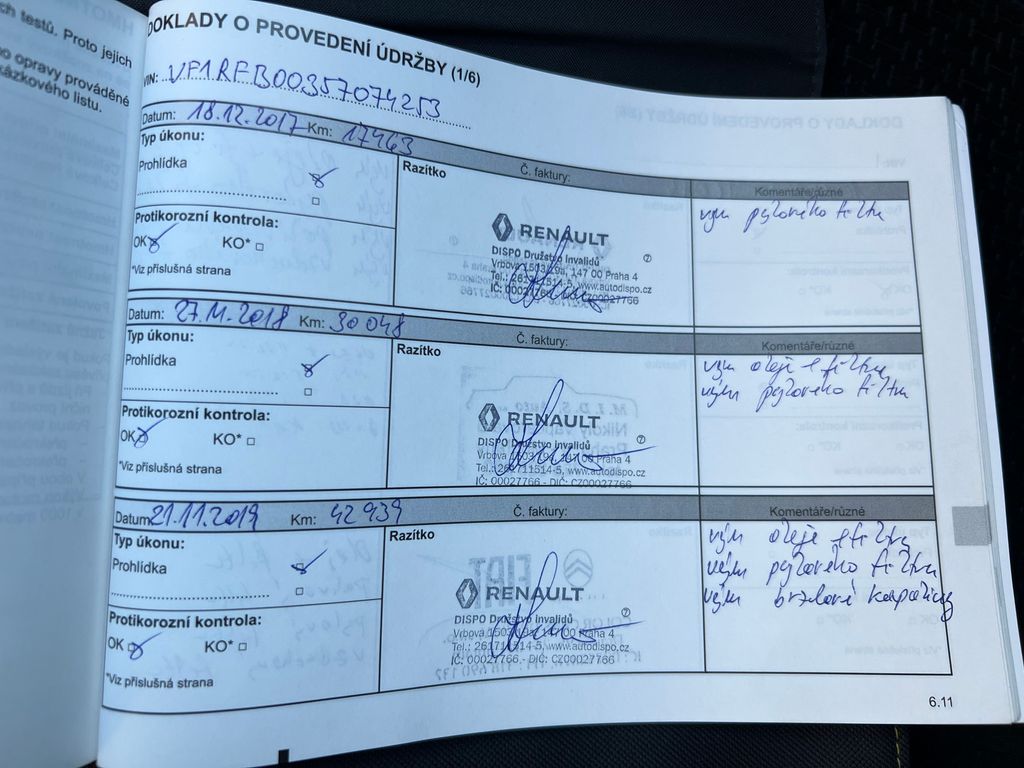 ch testů. Proto jejich
opravy prováděné
kázkového listu.
DOKLADY O PROVEDENÍ ÚDRŽBY (1/6)
VIN: VF1RFB00357074253
Datum: 18.12.2017 Km: 17463 Č. faktury: Komentáře/různé
Typ úkonu:
Prohlídka
Razítko
vým pylového filtru
Protikorozní kontrola:
OK KO*
*Viz příslušná strana
RENAULT
DISPO Družstvo Invalidů
Vrbova 1503/19a, 147 00 Praha 4
Tel.: 261711514-5, www.autodispo.cz
IČ: 00027766 - DIČ: CZ00027766
Datum: 27.11.2018 Km: 30048 Č. faktury: Komentáře/různé
Typ úkonu:
Prohlídka
Razítko
vým oleje + filtru
vým pylového filtru
Protikorozní kontrola:
OK KO*
*Viz příslušná strana
RENAULT
DISPO Družstvo Invalidů
Vrbova 1503/19a, 147 00 Praha 4
Tel.: 261711514-5, www.autodispo.cz
IČ: 00027766 - DIČ: CZ00027766
Datum: 21.11.2019 Km: 42939 Č. faktury: Komentáře/různé
Typ úkonu:
Prohlídka
Razítko
vým oleje + filtru
vým pylového filtru
vým brzdové kapaliny
Protikorozní kontrola:
OK KO*
*Viz příslušná strana
RENAULT
DISPO Družstvo Invalidů
Vrbova 1503/19a, 147 00 Praha 4
Tel.: 261711514-5, www.autodispo.cz
IČ: 00027766 - DIČ: CZ00027766
6.11